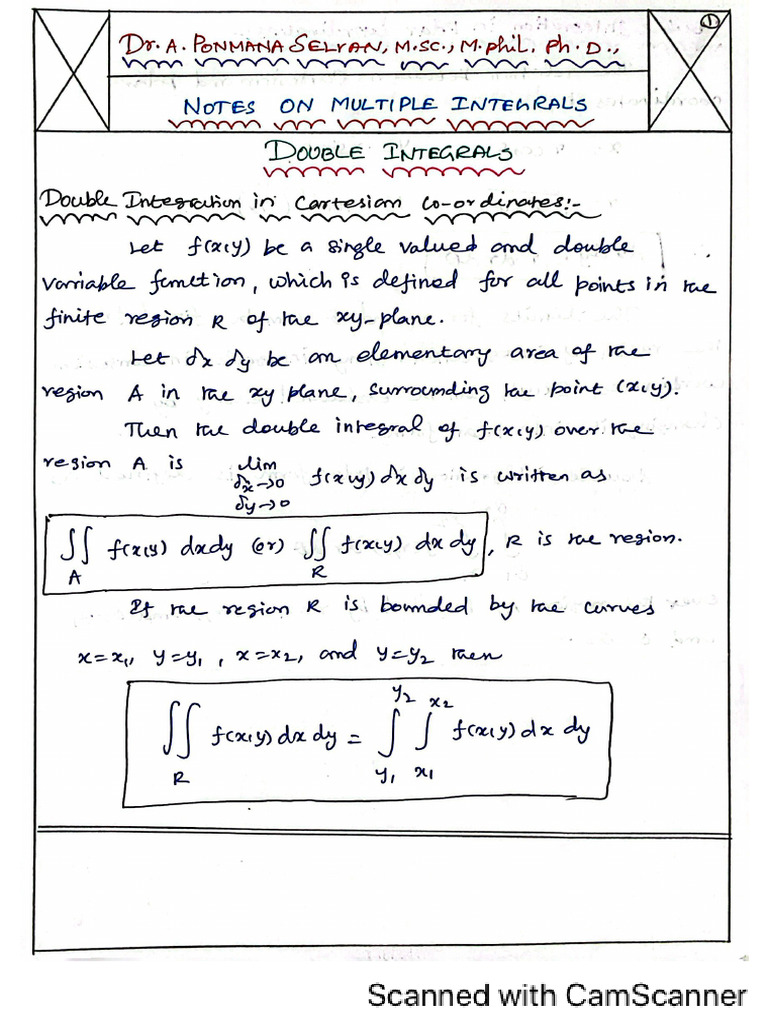 ①
Dr. A. PONMANA SELVAN, M.SC., M.Phil. Ph.D.,
NOTES ON MULTIPLE INTEGRALS
DOUBLE INTEGRALS
Double Integration in Cartesian Co-ordinates:-
Let f(x,y) be a single valued and double
variable function, which is defined for all points in the
finite region R of the xy-plane.
Let δx δy be an elementary area of the
region A in the xy plane, surrounding the point (x,y).
Then the double integral of f(x,y) over the
region A is lim f(x,y) δx δy is written as
δx→0
δy→0
∬ f(x,y) dxdy (or) ∬ f(x,y) dx dy, R is the region.
A R
If the region R is bounded by the curves
x=x₁, y=y₁, x=x₂, and y=y₂ then
y₂ x₂
∬ f(x,y) dx dy = ∫ ∫ f(x,y) dx dy
R y₁ x₁
Scanned with CamScanner